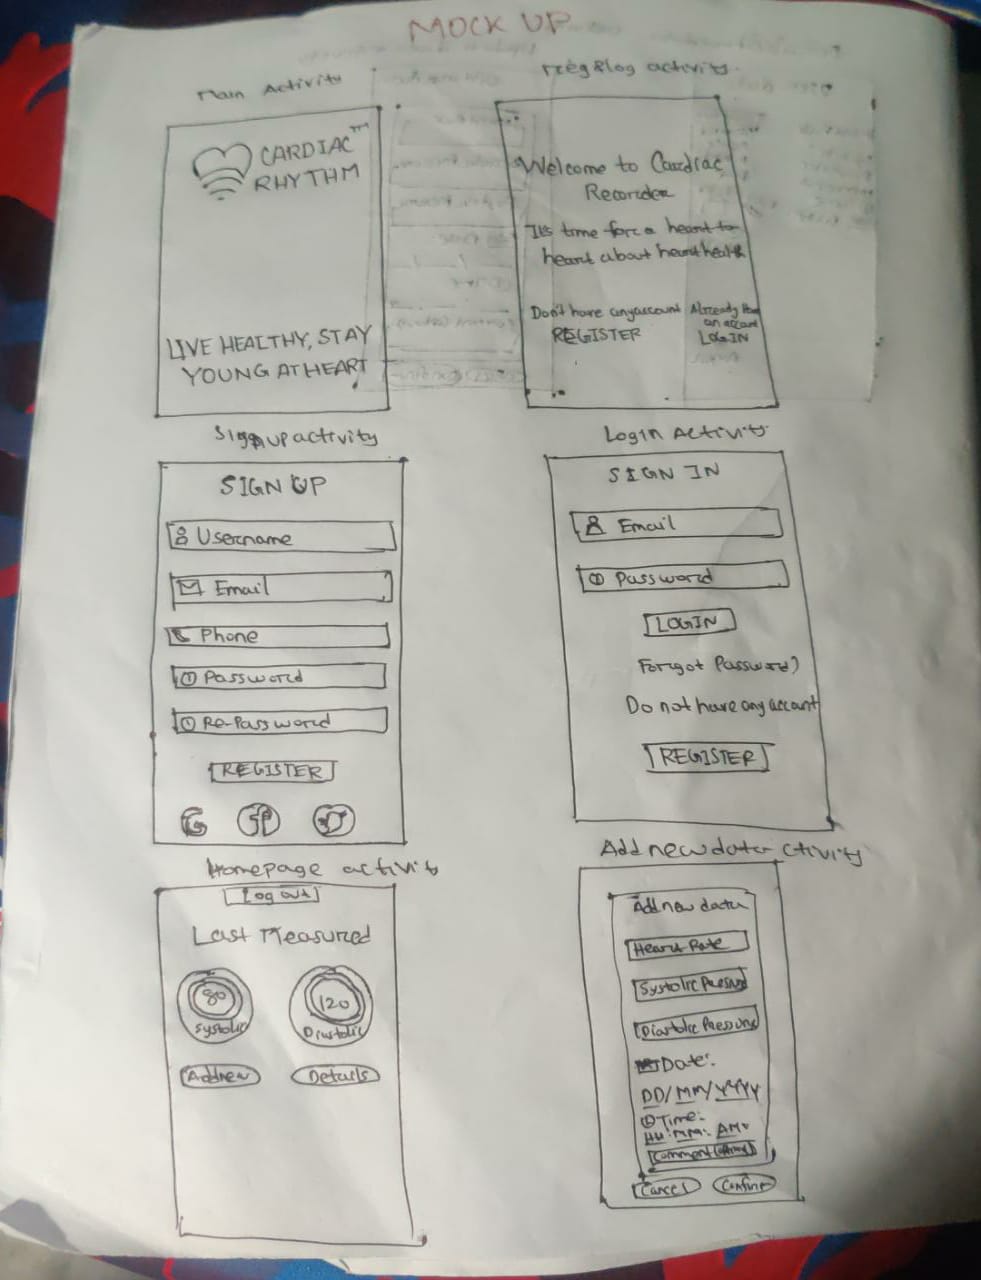 MOCK UP
Main Activity
CARDIAC™
RHYTHM
LIVE HEALTHY, STAY
YOUNG AT HEART
Reg&log activity
Welcome to Cardiac
Recorder
It's time for a heart to
heart about heart health
Don't have any account
REGISTER
Already Have
an account
LOGIN
Sign up activity
SIGN UP
Username
Email
Phone
Password
Re-Password
REGISTER
G
Login Activity
SIGN IN
Email
Password
LOGIN
Forgot Password?
Do not have any account
REGISTER
Homepage activity
Log out
Last Measured
80
Systolic
120
Diastolic
Add new
Details
Add new data ctivity
Add new data
Heart Rate
Systolic Pressure
Diastolic Pressure
Date:
DD/MM/YYYY
Time:
HH:MM: AM
Comment
Cancel
Confirm